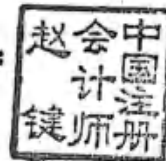 中国注册
会计师
赵键